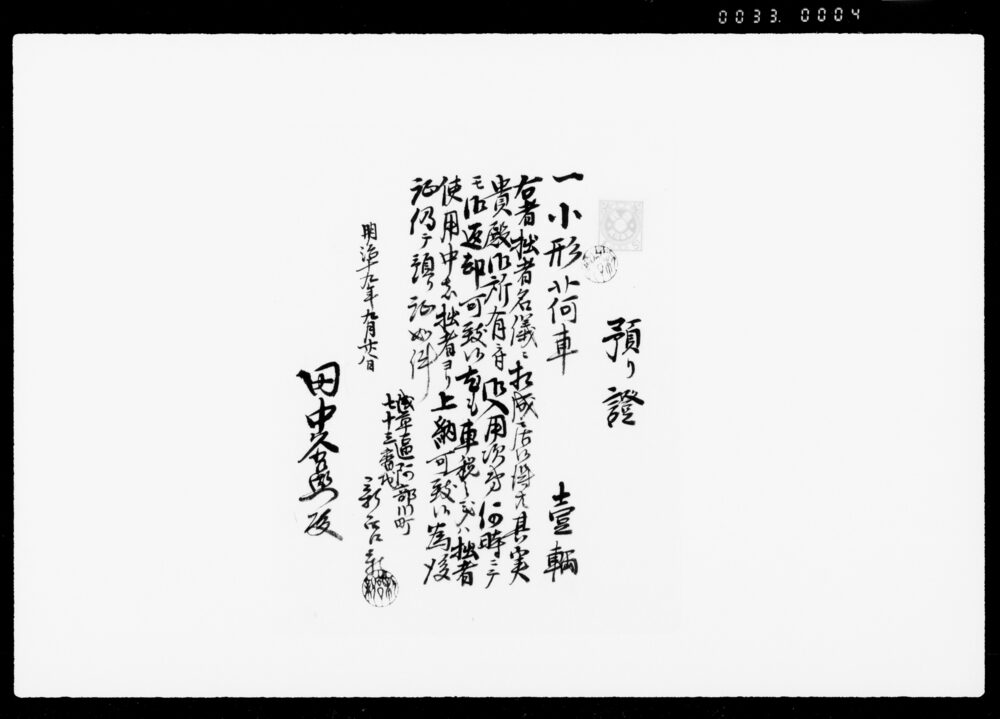 0033. 0004
預り證
一小形荷車 壹輌
右者拙者名儀ニ相成居候得共其実
貴殿御所有ニ付御入用次第何時ニテ
モ御返却可致候尤車税之義ハ拙者
使用中者拙者ヨリ上納可致候為後
証仍テ預り証如件
明治十九年九月廿八日
浅草區阿部川町
七十三番地
新
田中久兵衛殿